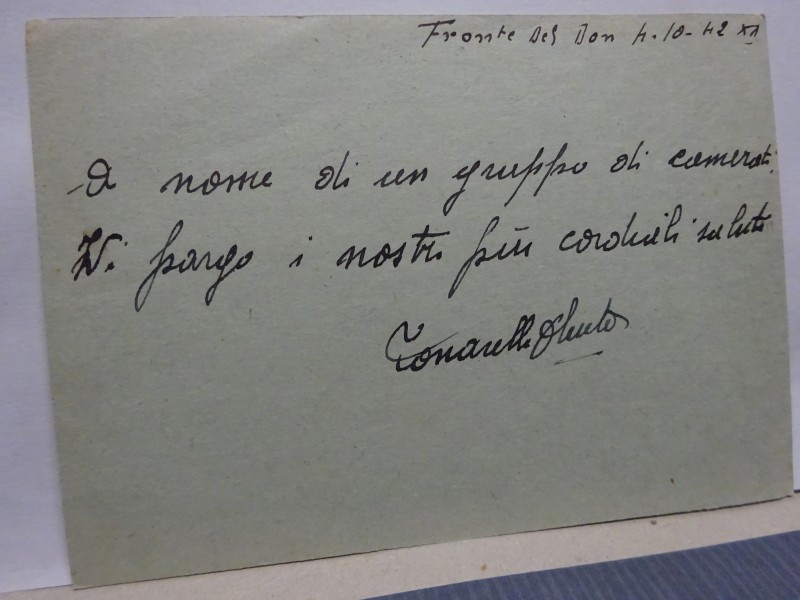 Fronte Del Don 4-10-42 XX
A nome di un gruppo di camerati
Vi pargo i nostri più cordiali saluti